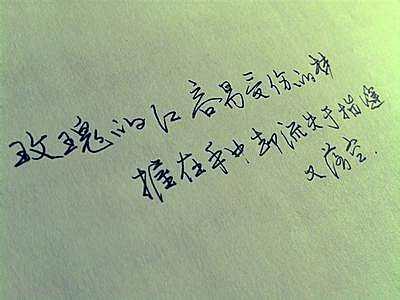 玫瑰的红容易受伤的梦
握在手中却流失于指缝
又落空.